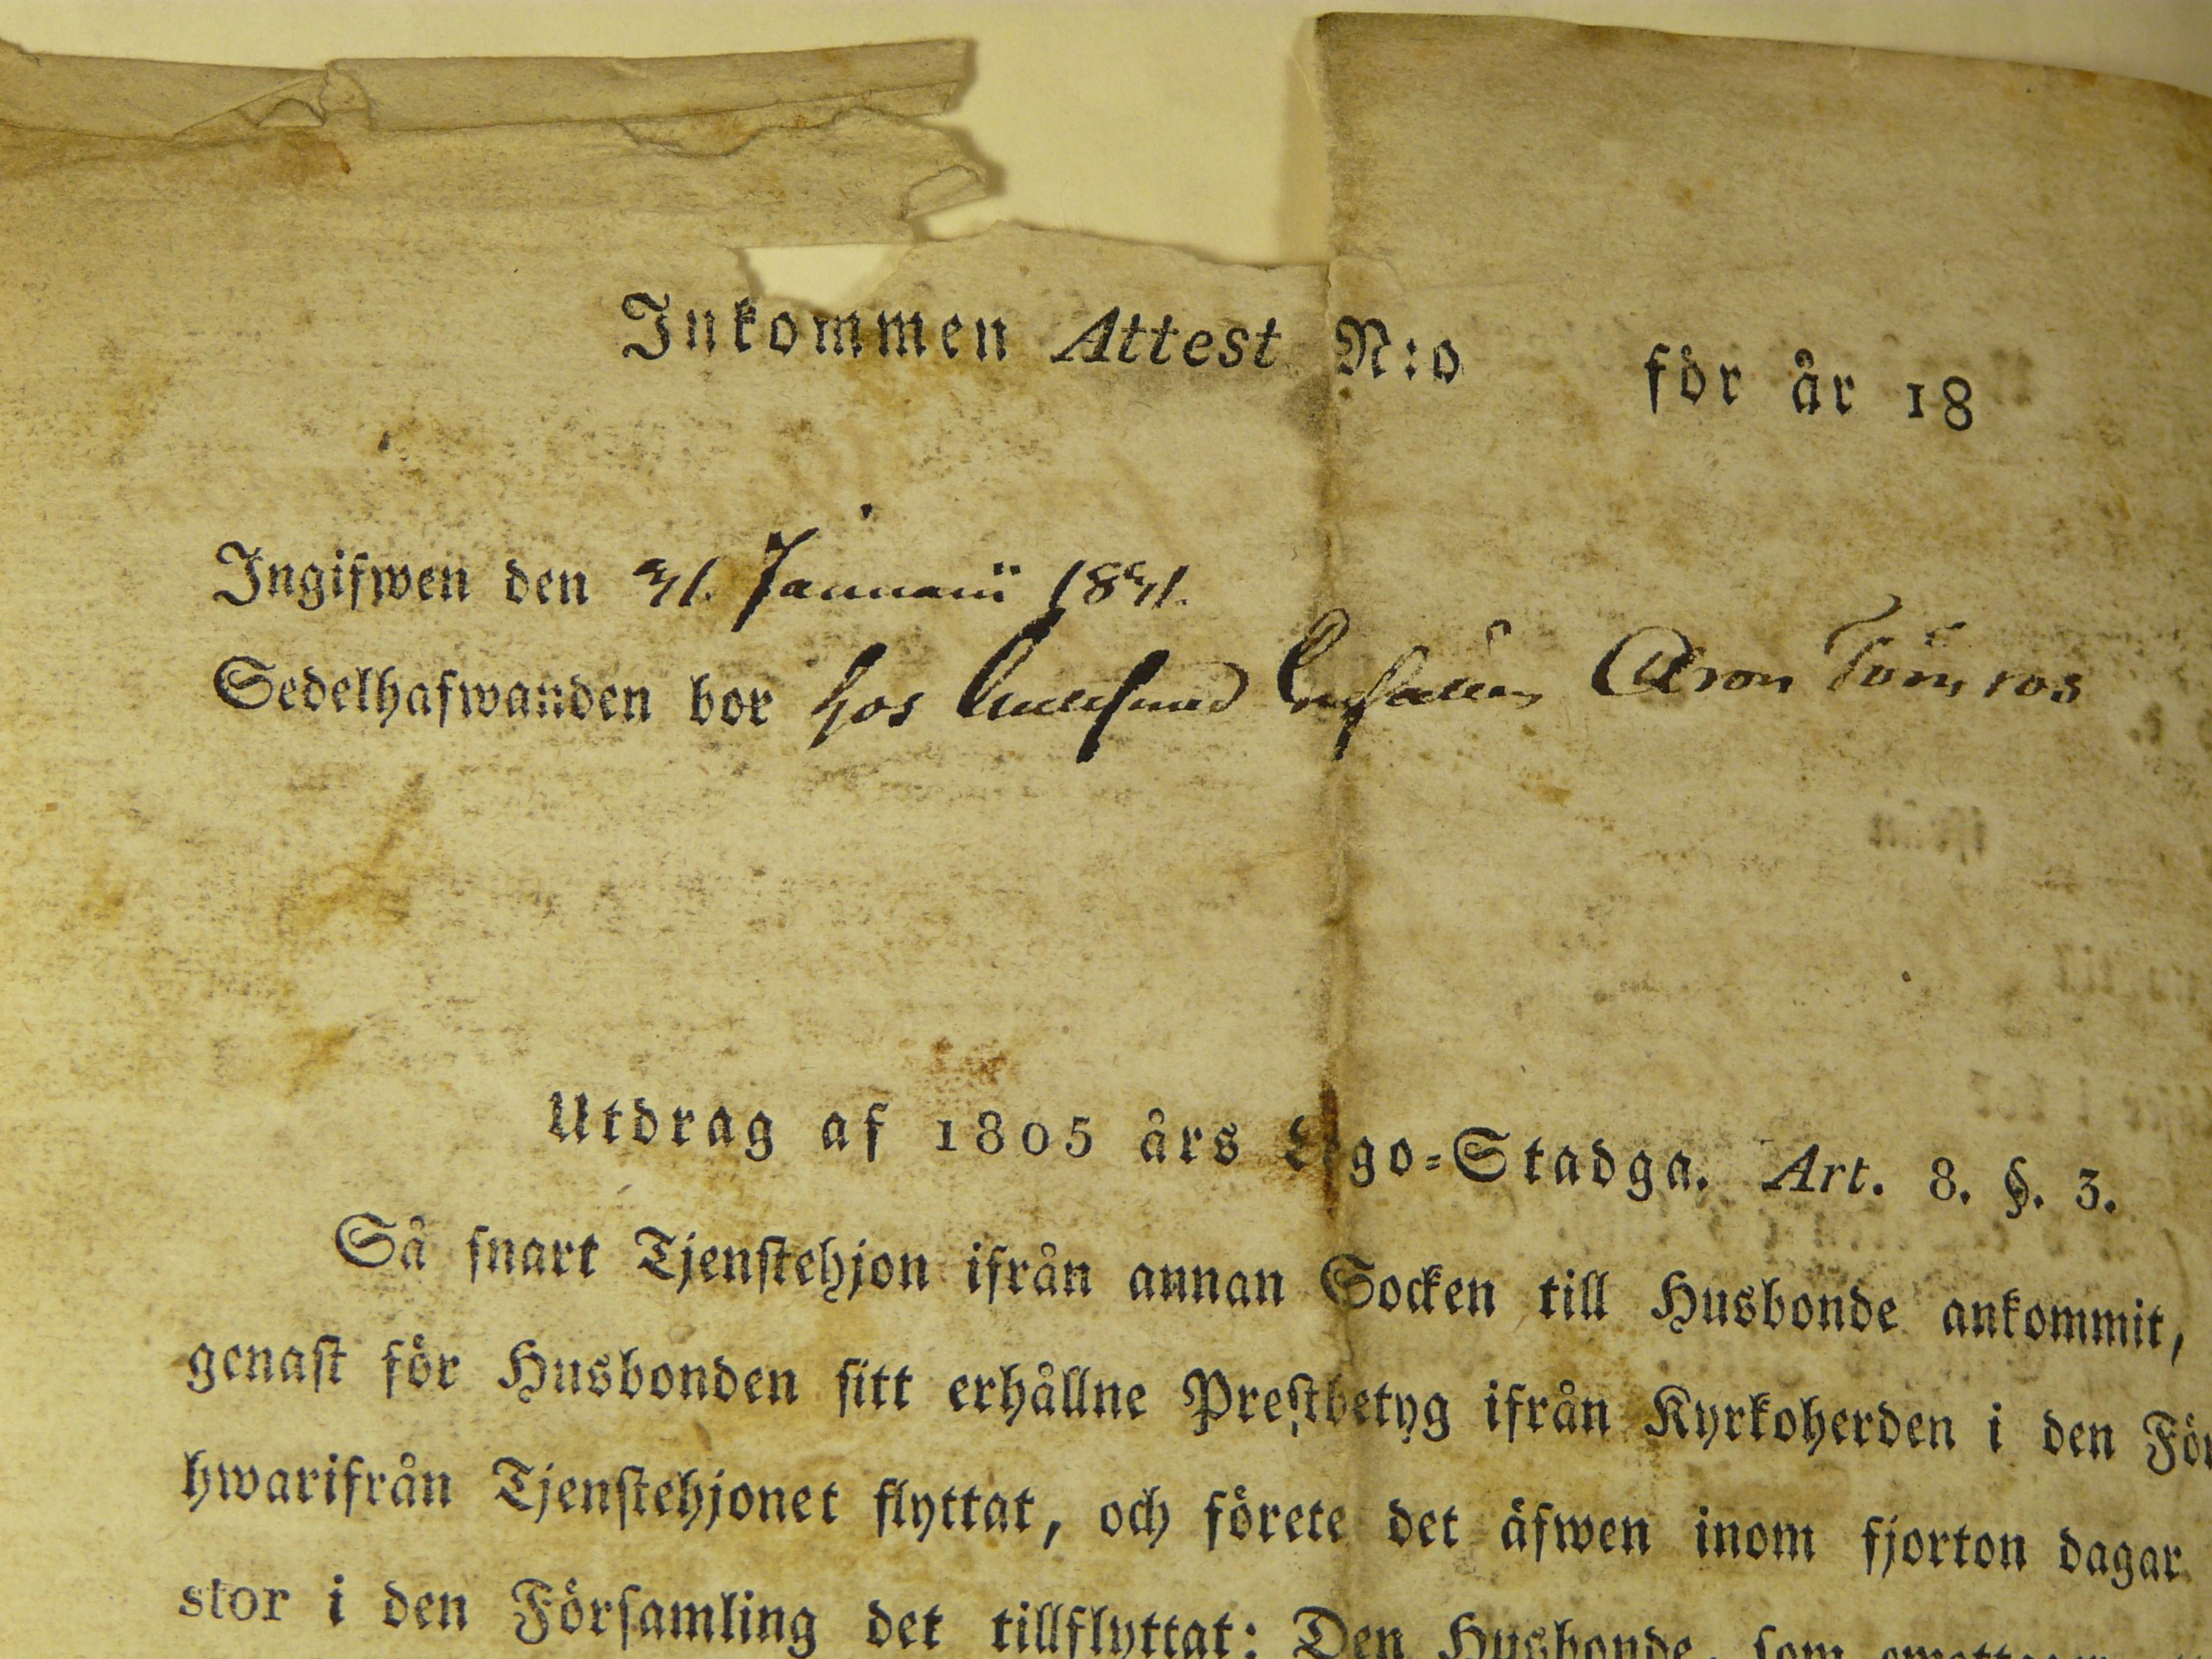 Inkommen Attest N:o för år 18
Ingifwen den Januarii
Sedelhafwanden bor hos Aron
Utdrag af 1805 års Lego-Stadga. Art. 8. §. 3.
Så snart Tjenstehjon ifrån annan Socken till Husbonde ankommit,
genast för Husbonden sitt erhållne Prestbetyg ifrån Kyrkoherden i den För
hwarifrån Tjenstehjonet flyttat, och förete det äfwen inom fjorton dagar
stor i den Församling det tillflyttat: Den Husbonde, som